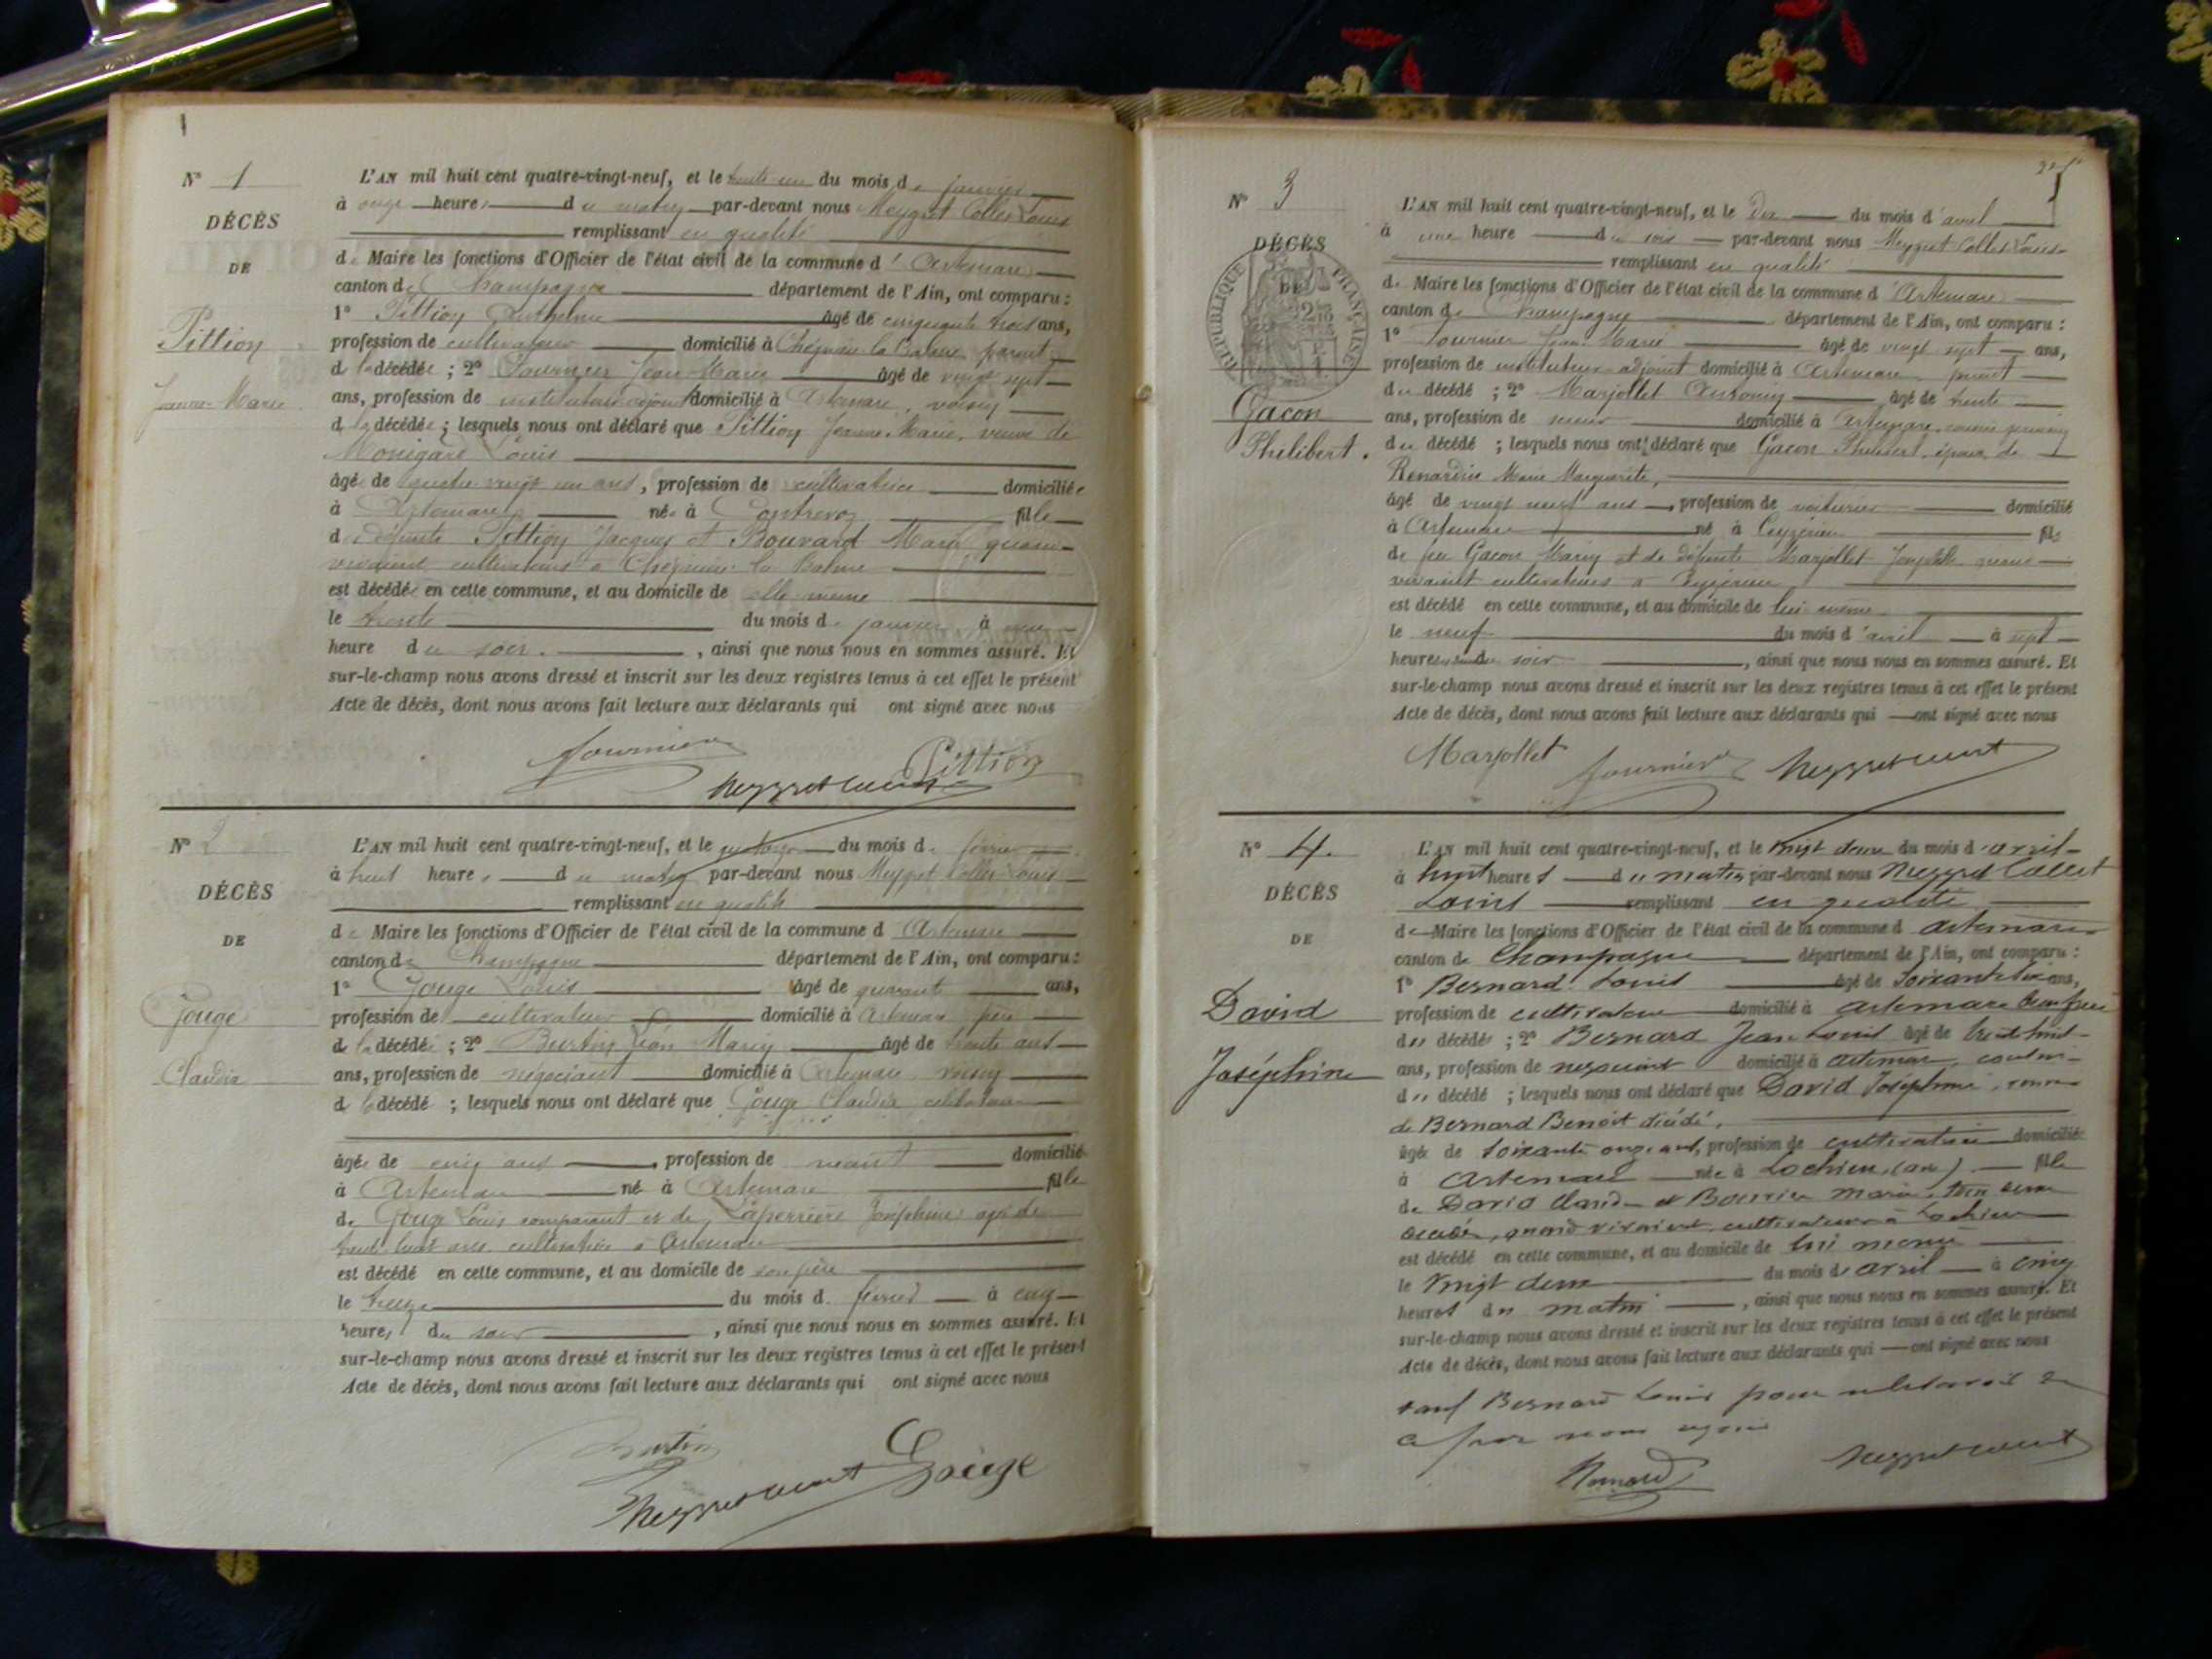 N° 1
DÉCÈS
DE
Pittion
Jeanne-Marie
L'AN mil huit cent quatre-vingt-neuf, et le trente un du mois de janvier
à onze heures du matin par-devant nous Meygret Collet Louis
remplissant en qualité
de Maire les fonctions d'Officier de l'état civil de la commune d'Artemare
canton de Champagne département de l'Ain, ont comparu :
1° Pittion Anthelme âgé de cinquante trois ans,
profession de cultivateur domicilié à Cheignieu la Balme parent
de la décédée ; 2° Fournier Jean Marie âgé de vingt sept
ans, profession de instituteur adjoint domicilié à Artemare, voisin
de la décédée ; lesquels nous ont déclaré que Pittion Jeanne Marie, veuve de
Louis
âgée de quatre vingt un ans, profession de cultivatrice domiciliée
à Artemare née à Contrevoz fille
de défunts Pittion Jacques et Bouvard Marie quand
vivaient cultivateurs à Cheignieu la Balme
est décédée en cette commune, et au domicile de elle même
le trente du mois de janvier à
heure du soir , ainsi que nous nous en sommes assuré. Et
sur-le-champ nous avons dressé et inscrit sur les deux registres tenus à cet effet le présent
Acte de décès, dont nous avons fait lecture aux déclarants qui ont signé avec nous
Fournier
Pittion
Meygret Collet
N° 2
DÉCÈS
DE
Gouge
Claudia
L'AN mil huit cent quatre-vingt-neuf, et le quatorze du mois de février
à huit heures du matin par-devant nous Meygret Collet Louis
remplissant en qualité
de Maire les fonctions d'Officier de l'état civil de la commune d Artemare
canton de Champagne département de l'Ain, ont comparu :
1° Gouge Louis âgé de quarante ans,
profession de cultivateur domicilié à Artemare père
de la décédée ; 2° Burtin Léon Marin âgé de trente ans
ans, profession de négociant domicilié à Artemare voisin
de la décédé ; lesquels nous ont déclaré que Gouge Claudia célibataire
âgée de cinq ans , profession de néant domicilié
à Artemare né à Artemare fille
de Gouge Louis comparant et de Laperrière Joséphine âgée de
trente huit ans cultivatrice à Artemare
est décédé en cette commune, et au domicile de son père
le treize du mois de février à cinq
heures du soir , ainsi que nous nous en sommes assuré. Et
sur-le-champ nous avons dressé et inscrit sur les deux registres tenus à cet effet le présent
Acte de décès, dont nous avons fait lecture aux déclarants qui ont signé avec nous
Burtin
Meygret Collet Gouge
N° 3
DÉCÈS
DE
RÉPUBLIQUE FRANÇAISE
Gacon
Philibert.
L'AN mil huit cent quatre-vingt-neuf, et le dix du mois d'avril
à une heure du soir par-devant nous Meygret Collet Louis
remplissant en qualité
de Maire les fonctions d'Officier de l'état civil de la commune d'Artemare
canton de Champagne département de l'Ain, ont comparu :
1° Fournier Jean Marie âgé de vingt sept ans,
profession de instituteur adjoint domicilié à Artemare parent
du décédé ; 2° Marjollet Antonin âgé de trente
ans, profession de domicilié à Artemare, cousin germain
du décédé ; lesquels nous ont déclaré que Gacon Philibert, époux de
Renardin Marie Marguerite,
âgé de vingt neuf ans, profession de voiturier domicilié
à Artemare né à Ceyzérieu fils
de feu Gacon Marin et de défunte Marjollet Josephte quand
vivaient cultivateurs à Ceyzérieu
est décédé en cette commune, et au domicile de lui même
le neuf du mois d'avril à sept
heures du soir , ainsi que nous nous en sommes assuré. Et
sur-le-champ nous avons dressé et inscrit sur les deux registres tenus à cet effet le présent
Acte de décès, dont nous avons fait lecture aux déclarants qui ont signé avec nous
Marjollet Fournier Meygret Collet
N° 4.
DÉCÈS
DE
David
Joséphine
L'AN mil huit cent quatre-vingt-neuf, et le vingt deux du mois d'avril
à huit heures du matin par-devant nous Meygret Collet
Louis remplissant en qualité
de Maire les fonctions d'Officier de l'état civil de la commune d artemare
canton de Champagne département de l'Ain, ont comparu :
1° Bernard Louis âgé de soixante six ans,
profession de cultivateur domicilié à artemare beau frère
du décédé ; 2° Bernard Jean Louis âgé de trente huit
ans, profession de négociant domicilié à artemare, cousin
du décédé ; lesquels nous ont déclaré que David Joséphine, veuve
de Bernard Benoit décédé,
âgée de soixante onze ans, profession de cultivatrice domiciliée
à Artemare née à Lochieu (ain) fille
de David Claude et Bouvier Marie, tous deux
décédés, quand vivaient cultivateurs à Lochieu
est décédé en cette commune, et au domicile de lui meme
le vingt deux du mois d avril à cinq
heures du matin , ainsi que nous nous en sommes assuré. Et
sur-le-champ nous avons dressé et inscrit sur les deux registres tenus à cet effet le présent
Acte de décès, dont nous avons fait lecture aux déclarants qui ont signé avec nous
sauf Bernard Louis pour ne le savoir de
ce par nous requis
Bernard Meygret Collet